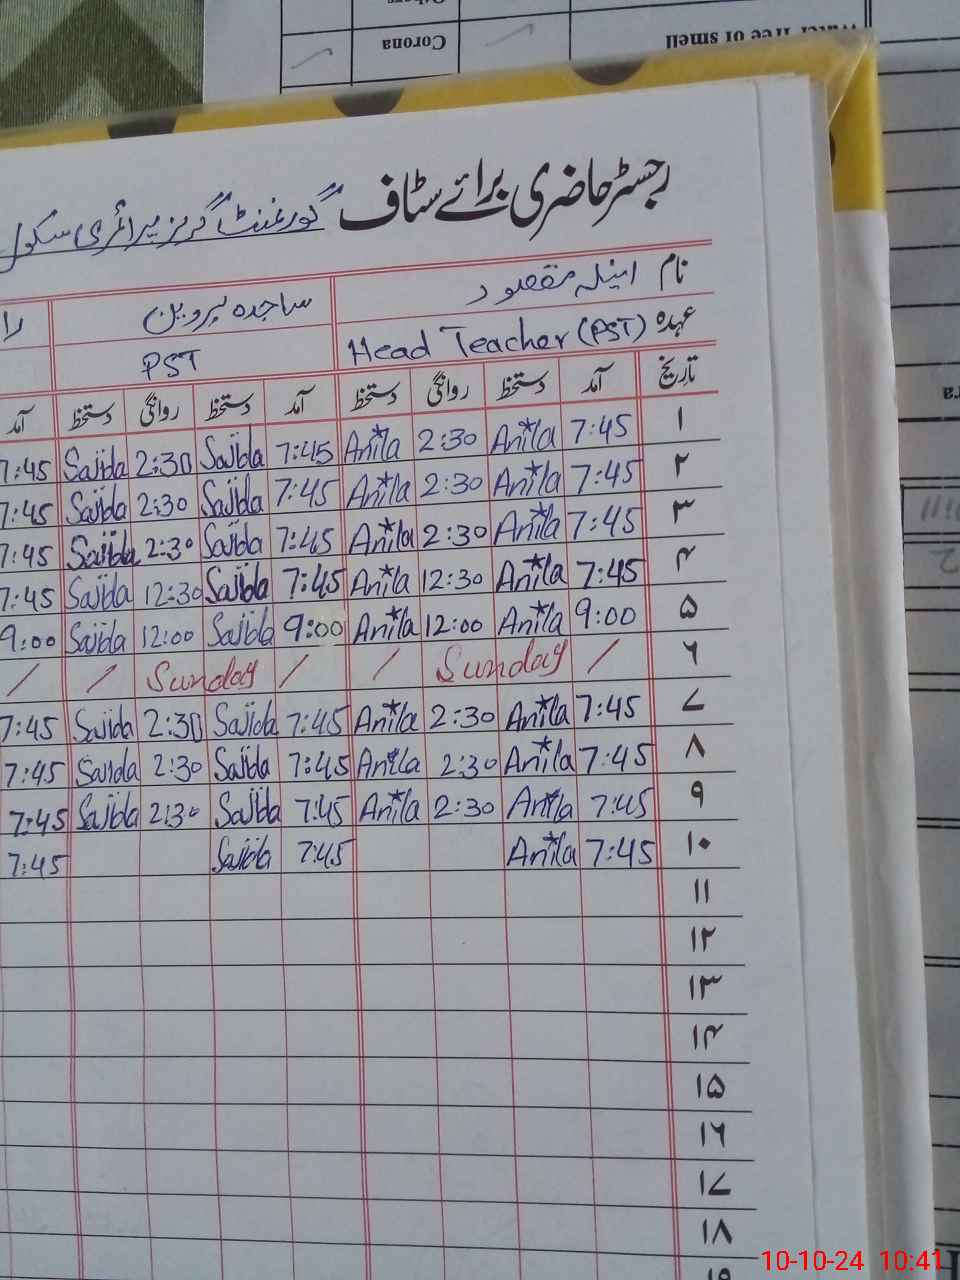 Others
Corona
Water free of smell
رجسٹر حاضری برائے سٹاف گورنمنٹ گرلز پرائمری سکول
نام انیلہ مقصود ساجدہ پروین را
عہدہ Head Teacher (PST) PST
تاریخ آمد دستخط روانگی دستخط آمد دستخط روانگی دستخط آمد
۱ 7:45 Anila 2:30 Anila 7:45 Sajida 2:30 Sajida 7:45
۲ 7:45 Anila 2:30 Anila 7:45 Sajida 2:30 Sajida 7:45
۳ 7:45 Anila 2:30 Anila 7:45 Sajida 2:30 Sajida 7:45
۴ 7:45 Anila 12:30 Anila 7:45 Sajida 12:30 Sajida 7:45
۵ 9:00 Anila 12:00 Anila 9:00 Sajida 12:00 Sajida 9:00
۶ / Sunday / / Sunday / /
۷ 7:45 Anila 2:30 Anila 7:45 Sajida 2:30 Sajida 7:45
۸ 7:45 Anila 2:30 Anila 7:45 Sajida 2:30 Sajida 7:45
۹ 7:45 Anila 2:30 Anila 7:45 Sajida 2:30 Sajida 7:45
۱۰ 7:45 Anila 7:45 Sajida 7:45
۱۱
۱۲
۱۳
۱۴
۱۵
۱۶
۱۷
۱۸
۱۹
10-10-24 10:41